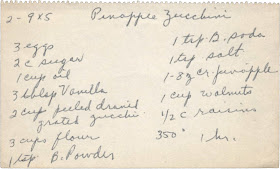 2 - 9x5 Pineapple Zucchini
3 eggs
2 c sugar
1 cup oil
3 tblsp Vanilla
2 cup peeled drained
grated zucchini
3 cups flour
1 tsp B. Powder
1 tsp. B. soda
1 tsp salt
1 - 8 oz cr. pineapple
1 cup walnuts
1/2 c raisins
350° 1 hr.